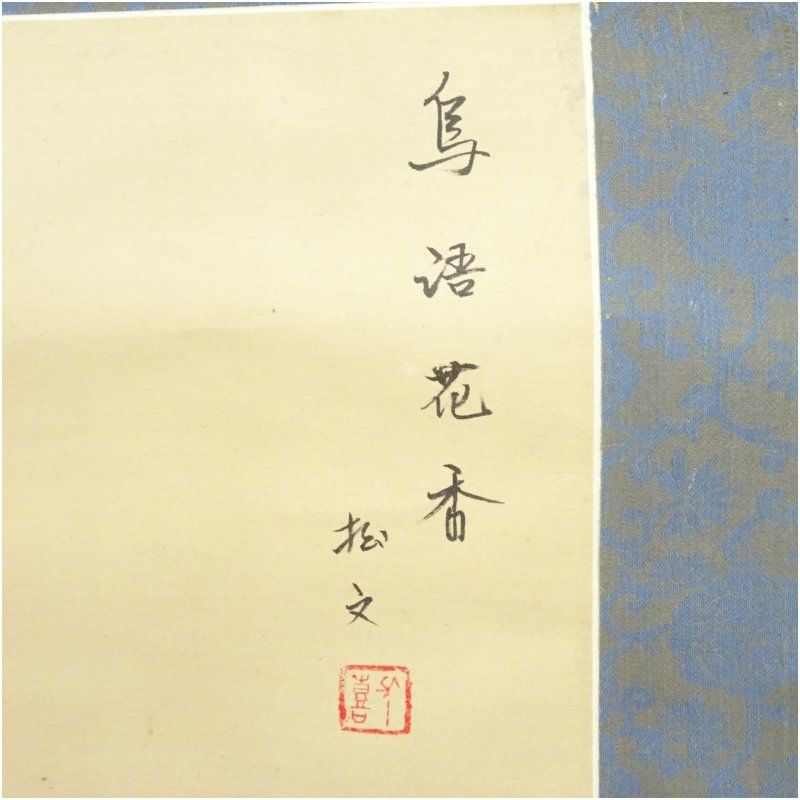 鳥語花香
松文